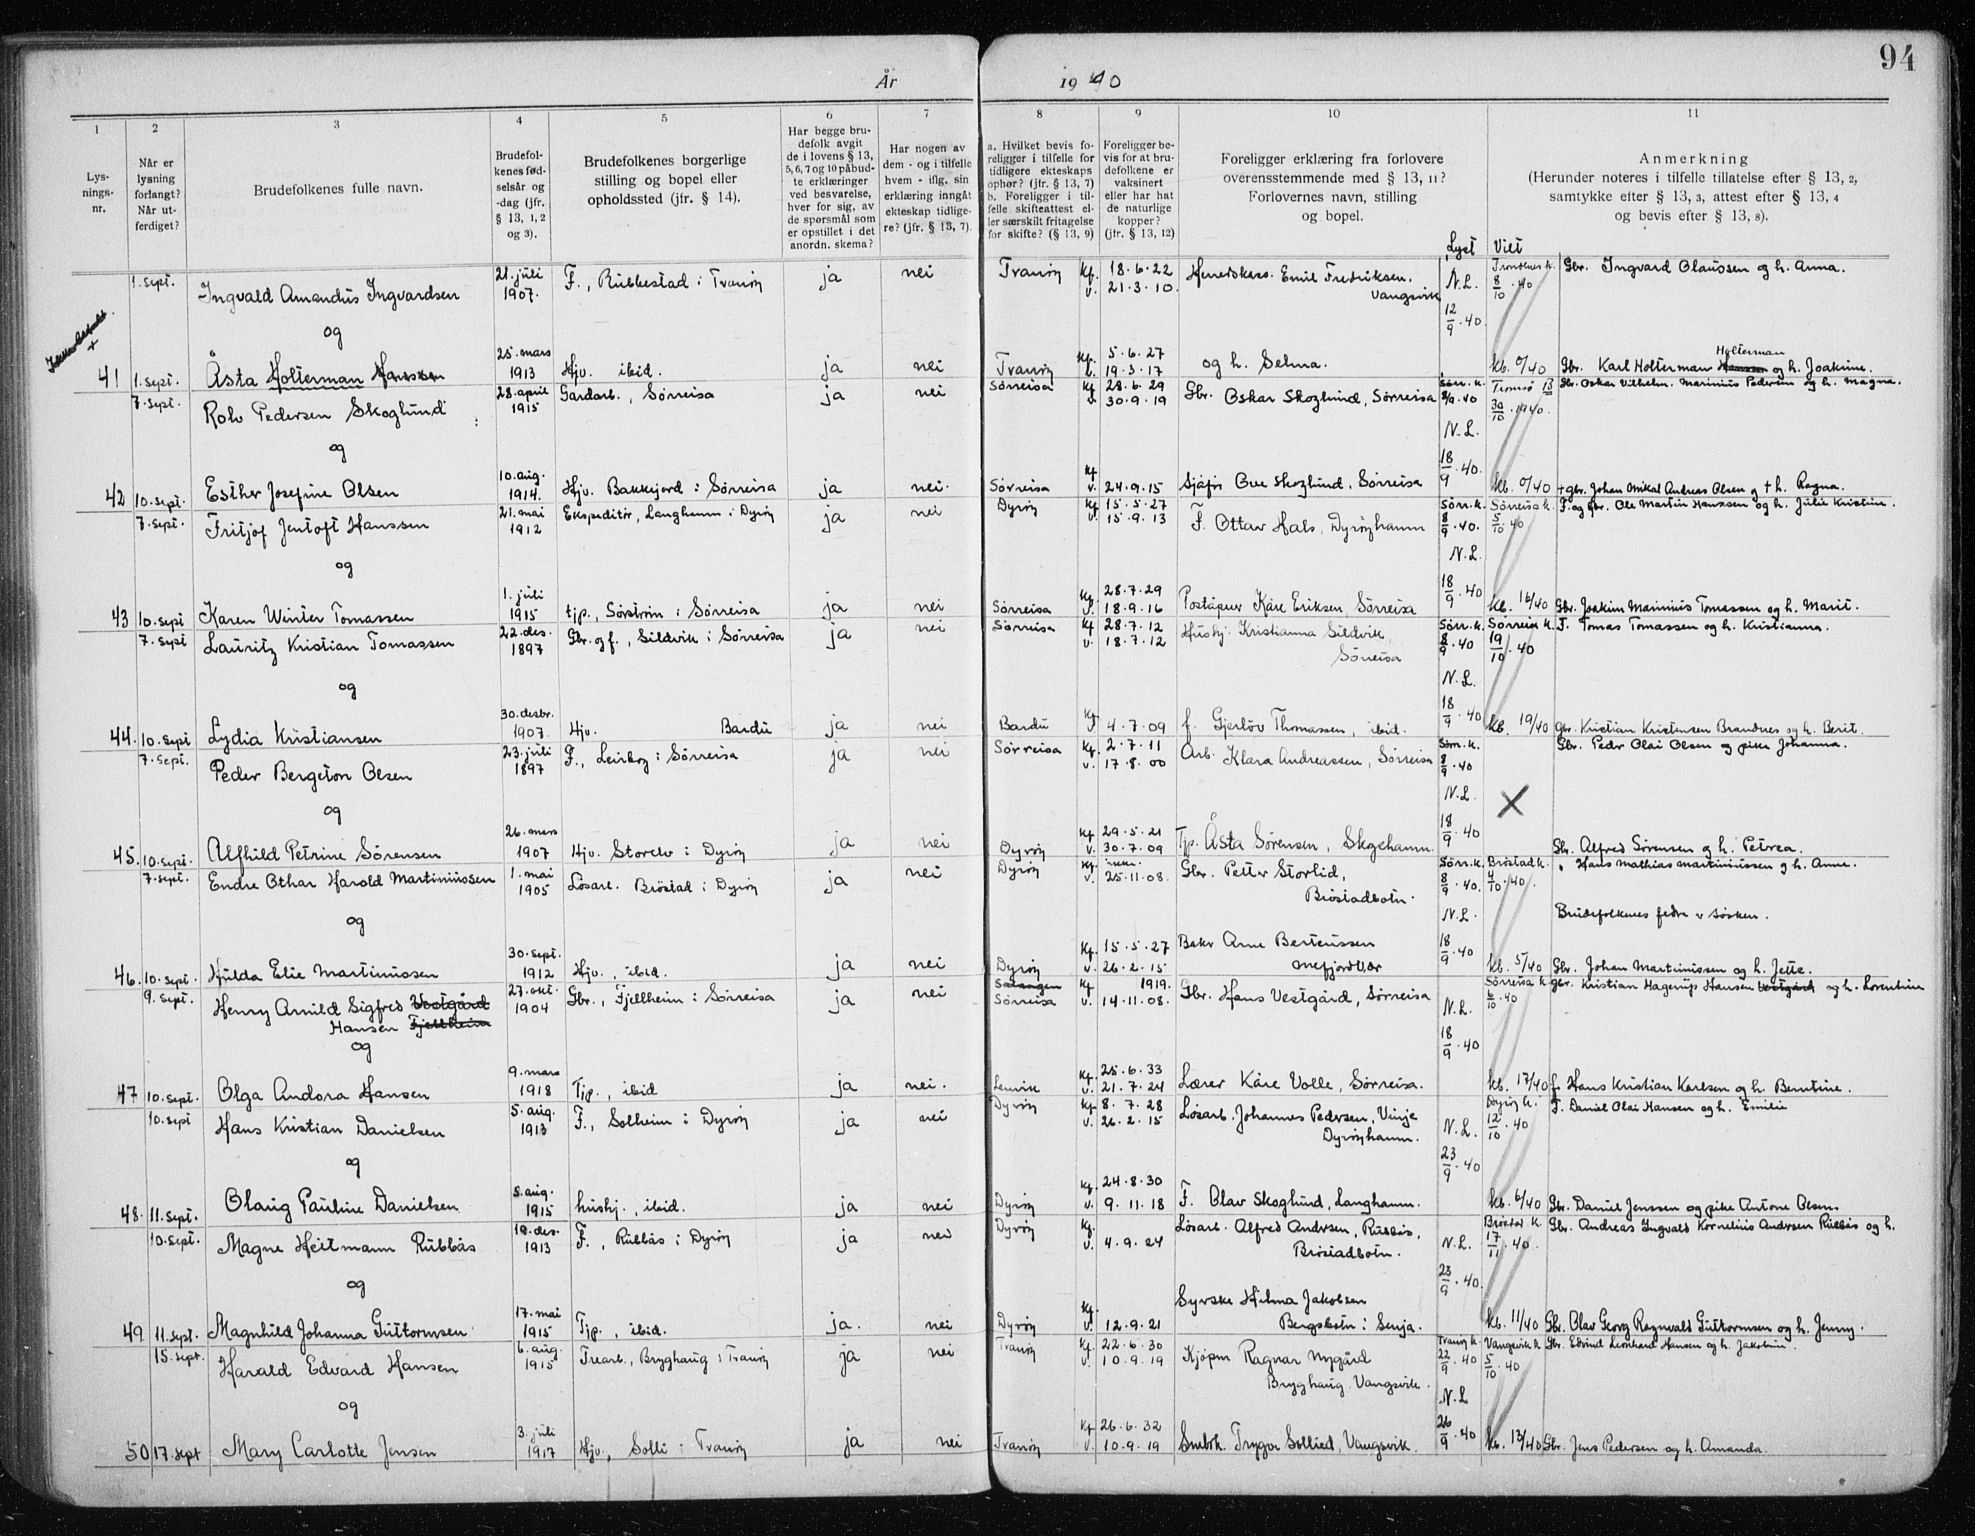 94
År 1940
1 2 3 4 5 6 7 8 9 10 11
Lys-
nings-
nr.
Når er
lysning
forlangt?
Når ut-
ferdiget?
Brudefolkenes fulle navn.
Brudefol-
kenes fød-
selsår og
-dag (jfr.
§ 13, 1, 2
og 3).
Brudefolkenes borgerlige
stilling og bopel eller
opholdssted (jfr. § 14).
Har begge bru-
defolk avgit
de i lovens § 13,
5, 6, 7 og 10 påbud-
te erklæringer
ved besvarelse,
hver for sig, av
de spørsmål som
er opstillet i det
anordn. skema?
Har nogen av
dem - og i tilfelle
hvem - iflg. sin
erklæring inngått
ekteskap tidlige-
re? (jfr. § 13, 7).
a. Hvilket bevis fo-
religger i tilfelle for
tidligere ekteskaps
ophør? (jfr. § 13, 7)
b. Foreligger i til-
felle skifteattest el-
ler særskilt fritagelse
for skifte? (§ 13, 9)
Foreligger be-
vis for at bru-
defolkene er
vaksinert
eller har hat
de naturlige
kopper?
(jfr. § 13, 12)
Foreligger erklæring fra forlovere
overensstemmende med § 13, 11?
Forlovernes navn, stilling
og bopel.
Anmerkning
(Herunder noteres i tilfelle tillatelse efter § 13, 2,
samtykke efter § 13, 3, attest efter § 13, 4
og bevis efter § 13, 8).
Lyst Viet
1. sept. Ingvald Amandus Ingvardsen 21. juli 1907. F., Rubbestad i Tranøy ja nei Tranøy Kf. 18.6.22 v. 21.3.10. Emil Fredriksen, Vangsvik N.L. 12/9.40 Trondenes k. 8/10.40 Gbr. Ingvard Olaussen og h. Anna.
og
41 1. sept. Åsta Holterman Hanssen 25. mars 1913 Hjv. ibid. ja nei Tranøy Kf. 5.6.27 v. 19.3.17 og h. Selma. kb. 9/40 Gbr. Karl Holterman Hanssen Holterman og h. Joakime.
7. sept. Rolv Pedersen Skoglund 28. april 1915 Gardarb., Sørreisa ja nei Sørreisa Kf 28.6.29 v 30.9.19 Gbr. Oskar Skoglund, Sørreisa Sørr. k. 8/9.40 N.L. 18/9.40. Tromsø 30/10.1940. Gbr. Oskar Vilhelm Marinius Pedersen og h. Magna.
og
42 10. sept. Esther Josefine Olsen 10. aug. 1914. Hjv. Bakkejord i Sørreisa ja nei. Sørreisa Kf v. 24.9.15 Sjåfør Ove Skoglund, Sørreisa kb. 9/40 + gbr. Johan Mikal Andreas Olsen og + h. Ragna.
7. sept. Fritjof Jentoft Hanssen 21. mai 1912 Ekspeditør, Langhamn i Dyrøy ja nei Dyrøy Kf 15.5.27 v. 15.9.13 F. Ottar Hals, Dyrøyhamn Sørr. k. 8/9.40. N.L. 18/9.40 Sørreisa k. 5/10.40 F. og gbr. Ole Martin Hanssen og h. Julie Kristine.
og
43 10. sept Karen Winter Tomassen 1. juli 1915 tjp., Sørstrøm i Sørreisa ja nei Sørreisa Kf 28.7.29 v. 18.9.16 Poståpner Kåre Eriksen Sørreisa kb. 16/40 Gbr. Joakim Marinius Tomassen og h. Marit.
7. sept Lauritz Kristian Tomassen 22. des. 1897 Gbr. og f., Sildvik i Sørreisa ja nei Sørreisa Kf 28.7.12 v. 18.7.12 Hushj. Kristianna Sildvik, Sørreisa Sørr. k. 8/9.40 N.L. 18/9.40 Sørreisa k. 19/10.40 F. Tomas Tomassen og h. Kristianna.
og
44. 10. sept Lydia Kristiansen 30. desbr. 1907. Hjv. Bardu ja nei Bardu Kf v 4.7.09 f. Gjerløv Thomassen, ibid. kb. 19/40 Gbr. Kristian Kristensen Brandnes og h. Berit.
7. sept. Peder Bergeton Olsen 23. juli 1897 F., Leirbog i Sørreisa ja nei Sørreisa Kf. 2.7.11 v. 17.8.00 Arb. Klara Andreassen, Sørreisa Sørr. k. 8/9.40 N.L. 18/9.40 X Gbr. Peder Olai Olsen og pike Johanna.
og
45. 10. sept. Alfhild Petrine Sørensen 26. mars 1907 Hjv. Storelv i Dyrøy ja nei Dyrøy Kf 29.5.21 v. 30.7.09 Tjp. Åsta Sørensen, Skogshamn. Gbr. Alfred Sørensen og h. Petrea.
7. sept. Endre Othar Harold Martiniussen 1. mai 1905 Løsarb. Brøstad i Dyrøy ja nei Dyrøy Kf. v. 25.11.08. Gbr. Petter Storlid, Brøstadbotn. Sørr. k. 8/9.40. N.L. 18/9.40 Brøstad k. 4/10.40. " Hans Mathias Martiniussen og h. Anne.
og
Brudefolkenes fedre v søsken.
46. 10. sept. Hilda Elie Martinussen 30. sept. 1912 Hjv., ibid. ja nei Dyrøy Kf. 15.5.27 v. 26.2.15 Baker Arne Berteussen Mefjordvær kb. 5/40 Gbr. Johan Martinissen og h. Jette.
9. sept. Henry Arnild Sigfred Vestgård Hansen Fjellheim 27. okt. 1904 Gbr., Fjellheim i Sørreisa ja nei Salangen Sørreisa Kf 1919. v. 14.11.08. Gbr. Hans Vestgård, Sørreisa N.L. 18/9.40 Sørreisa k. 6/10.40 gbr. Kristian Hagerup Hansen Vestgård og h. Lorentine
og
47 10. sept. Olga Andora Hansen 9. mars 1918 Tjp., ibid ja nei. Lenvik Kf. 25.6.33 v. 21.7.24 Lærer Kåre Volle, Sørreisa. kb. 17/40 f. Hans Kristian Karlsen og h. Berntine.
10. sept Hans Kristian Danielsen 5. aug. 1913 F., Solheim i Dyrøy ja nei Dyrøy Kf 8.7.28 v. 26.2.15 Løsarb. Johannes Pedersen, Vinje Dyrøyhamn. N.L. 23/9.40 Dyrøy k. 12/10.40 F. Daniel Olai Hansen og h. Emilie
og
48. 11. sept. Olaug Pauline Danielsen 5. aug. 1915 hushj., ibid. ja nei Dyrøy Kf. 24.8.30 v. 9.11.18 F. Olav Skoglund, Langhamn. kb. 6/40 Gbr. Daniel Jenssen og pike Antone Olsen.
10. sept. Magne Heitmann Rubbås 19. des. 1913 F., Rubbås i Dyrøy ja nei Dyrøy Kf. v. 4.9.24 Løsarb. Alfred Andersen, Rubbås, Brøstadbotn. N.L. 23/9.40. Brøstad k. 17/11.40. Gbr. Andreas Ingvald Kornelius Andersen Rubbås og h.
og
49 11. sept. Magnhild Johanna Guttormsen 17. mai 1915 Tjp., ibid. ja. nei Dyrøy Kf. v. 12.9.21 Syerske Hilma Jakobsen Bergsbotn i Senja. kb. 11/40 Gbr. Olav Georg Ragnvald Guttormsen og h. Jenny.
15. sept. Harald Edvard Hansen 6. aug. 1915 Trearb., Bryghaug i Tranøy ja nei Tranøy Kf. 22.6.30 v. 10.9.19 Kjøpm Ragnar Nygård Bryghaug, Vangsvik. Tranøy k. 22/9.40 N.L 26/9.40 Vangsvik k. 5/10.40 Gbr. Edvind Leonhard Hansen og h. Jakobine.
og
50 17. sept Mary Carlotte Jensen 3. juli 1917 Hjv., Solli i Tranøy ja nei Tranøy Kf 26.6.32 v. 10.9.19 Småbrk. Trygve Sollied, Vangsvik. kb. 13/40 Gbr. Jens Pedersen og h. Amanda.